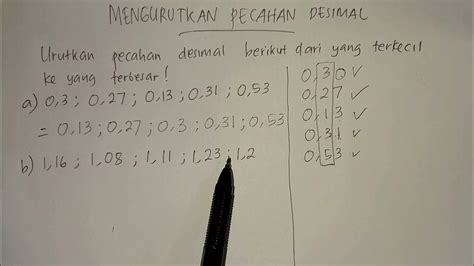 MENGURUTKAN PECAHAN DESIMAL
Urutkan pecahan desimal berikut dari yang terkecil
ke yang terbesar!
a) 0,3 ; 0,27 ; 0,13 ; 0,31 ; 0,53
= 0,13 ; 0,27 ; 0,3 ; 0,31 ; 0,53
b) 1,16 ; 1,08 ; 1,11 ; 1,23 ; 1,2
0,30 ✓
0,27 ✓
0,13 ✓
0,31 ✓
0,53 ✓